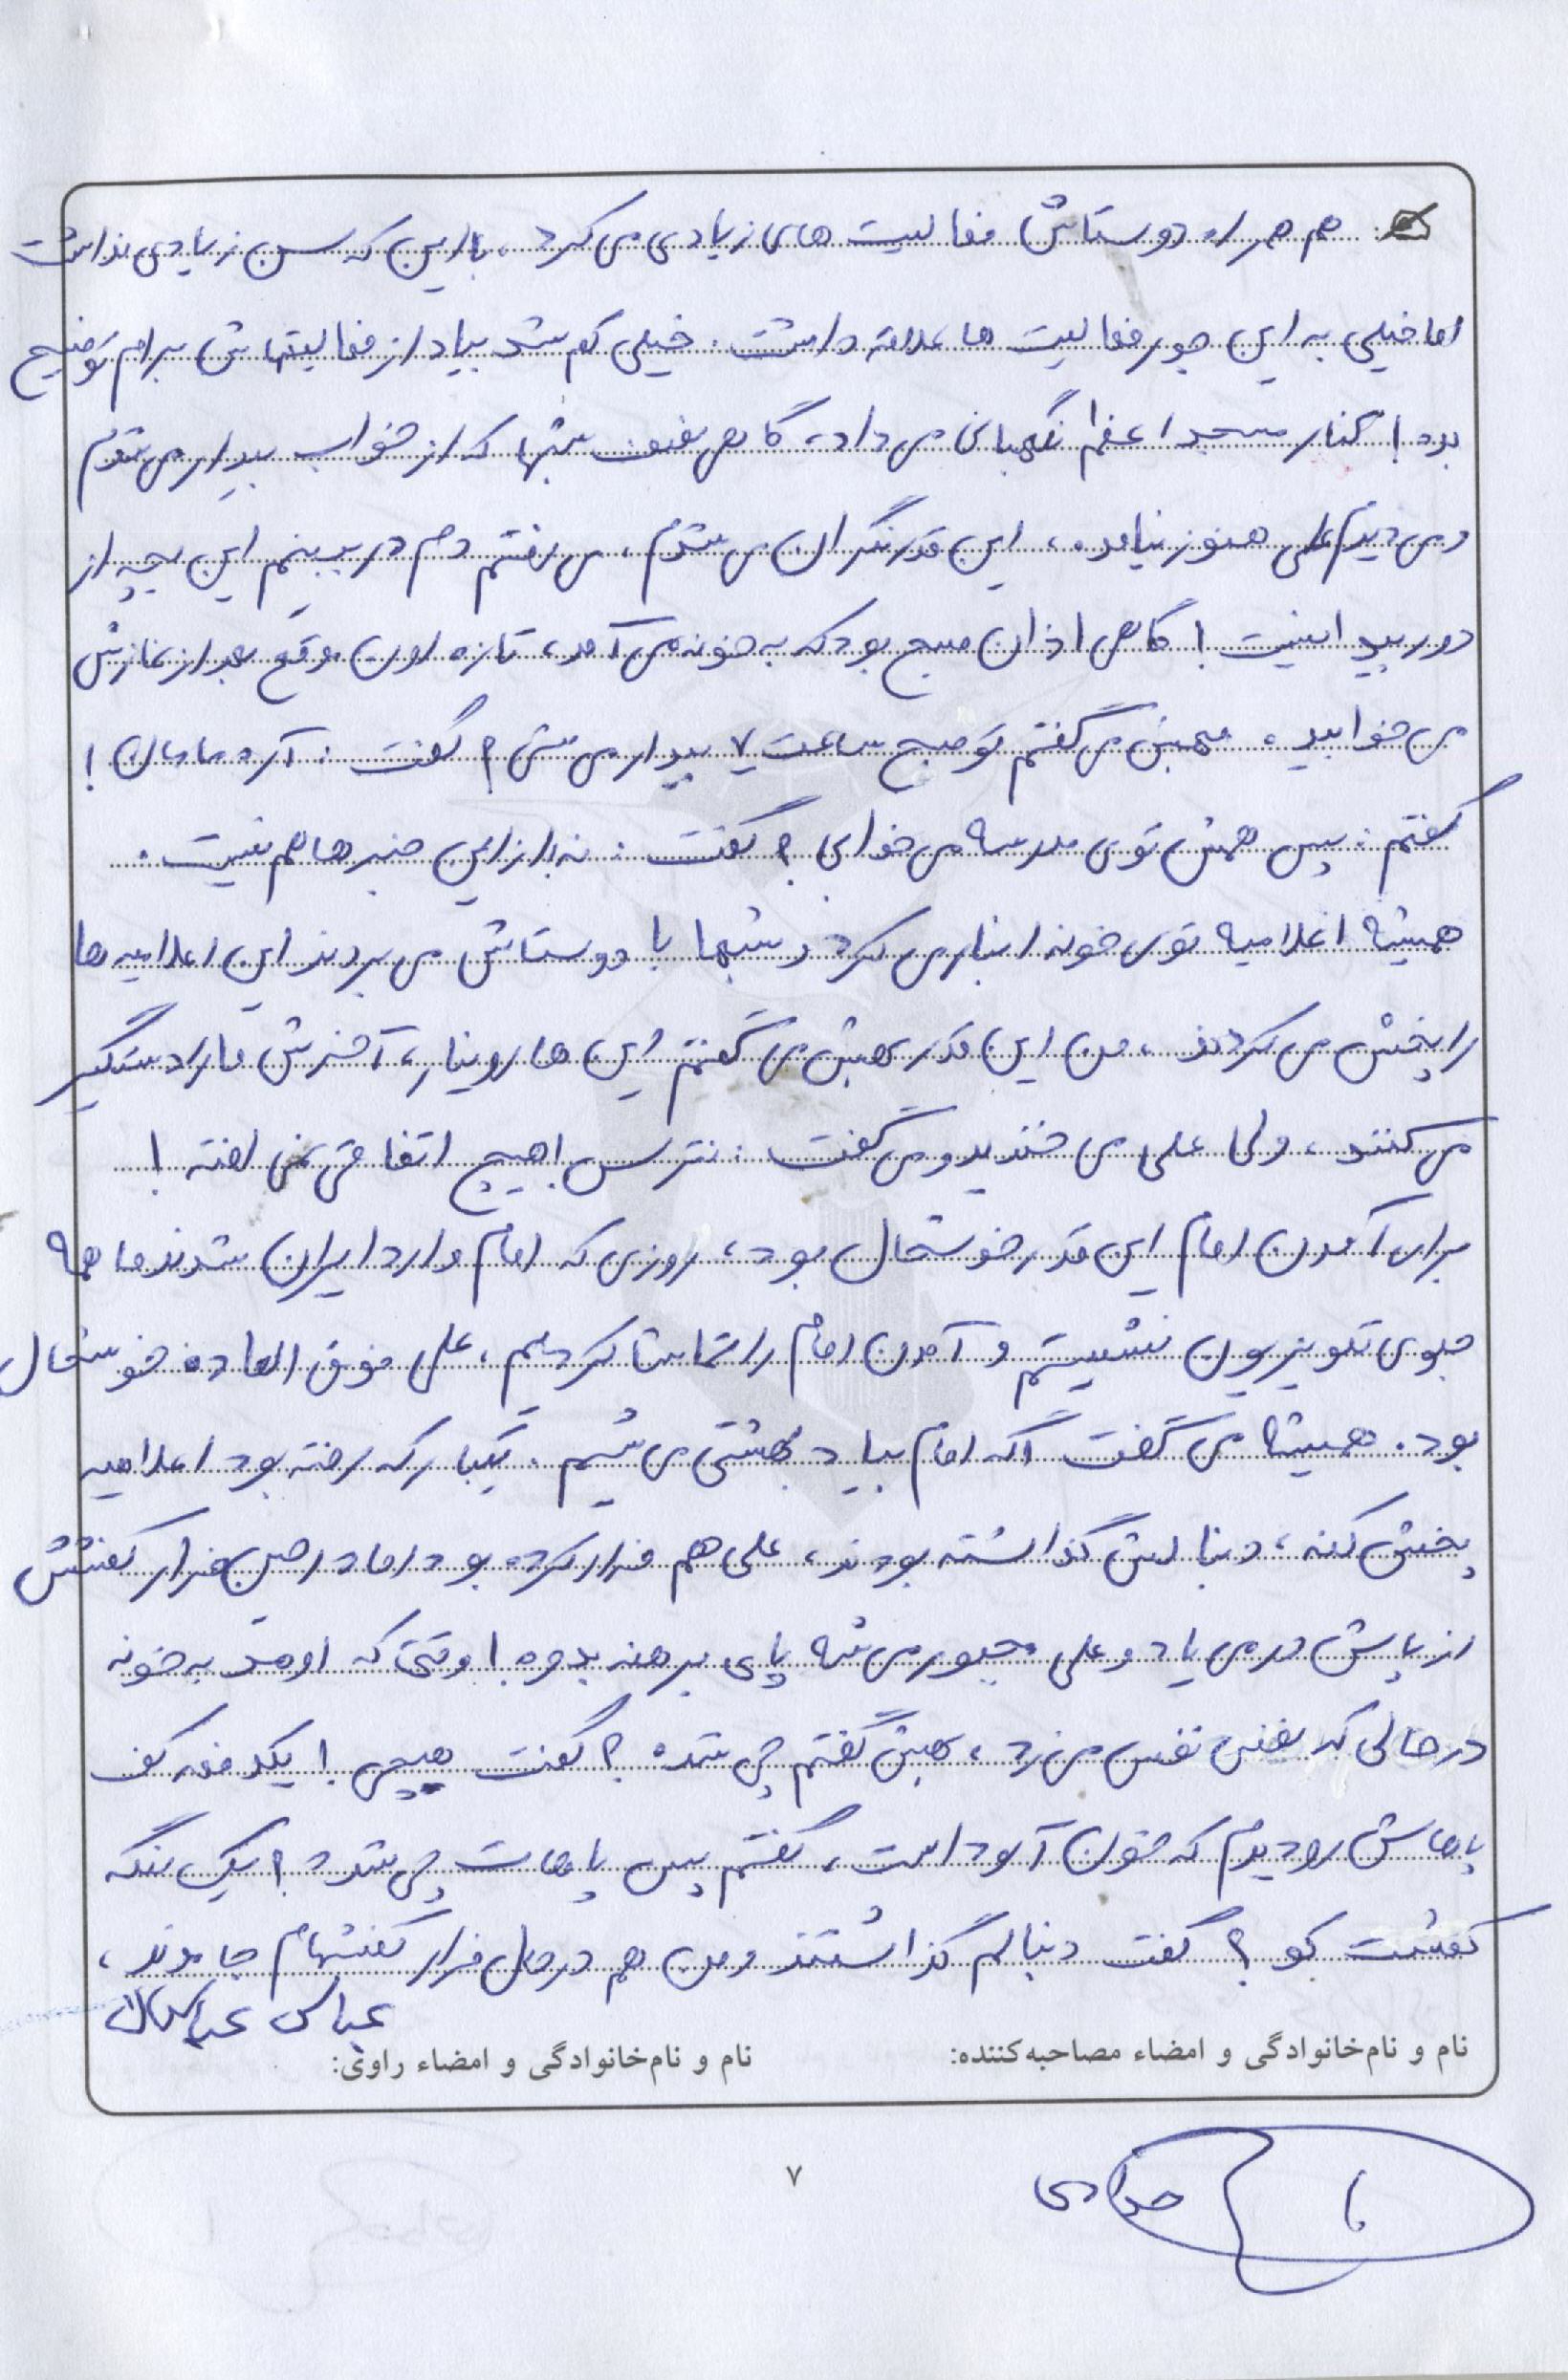 هم همراه دوستاش فعالیت های زیادی می کرد، با این که سن زیادی نداشت
اما خیلی به این جور فعالیت ها علاقه داشت. خیلی کم می شد بیاد از فعالیتهاش برام توضیح
بده! کنار مسجد اعظم نگهبانی می داد، گاهی نصف شبها که از خواب بیدار می شدم
و می دیدم علی هنوز نیامده، این قدر نگران می شدم، می رفتم دم در ببینم این بچه از
دور پیدا نیست! گاهی اذان صبح بود که به خونه می آمد، تازه اون موقع بعد از نمازش
می خوابید، بهش می گفتم تو صبح ساعت ۷ بیدار می شی؟ گفت: آره مامان!
گفتم: پس همش توی مدرسه می خوابی؟ گفت: نه از این خبرها هم نیست.
همیشه اعلامیه توی خونه انبار می کرد و شبها با دوستاش می بردند این اعلامیه ها
را پخش می کردند، من این قدر بهش می گفتم این ها رو نیار، آخرش ما را دستگیر
می کنند، ولی علی می خندید و می گفت: نترس هیچ اتفاقی نمی افته!
برای آمدن امام این قدر خوشحال بود، روزی که امام وارد ایران شدند ما همه
جلوی تلویزیون نشستیم و آمدن امام را تماشا کردیم، علی فوق العاده خوشحال
بود. همیشه می گفت اگه امام بیاد بهشتی می شیم. یکبار که رفته بود اعلامیه
پخش کنه، دنبالش گذاشته بودند، علی هم فرار کرده بود اما در حین فرار کفشش
از پاش در می یاد و علی مجبور می شه پای برهنه بدوه! وقتی که اومد به خونه
در حالی که نفس نفس می زد، بهش گفتم چی شده؟ گفت هیچی! یکدفعه کف
پاهاش رو دیدم که خون آلود است، گفتم پس پاهات چی شده؟ یک لنگه
کفشت کو؟ گفت دنبالم گذاشتند و من هم در حال فرار کفشهام جا موند،
عباس
نام و نام‌خانوادگی و امضاء مصاحبه‌کننده: نام و نام‌خانوادگی و امضاء راوی:
۷